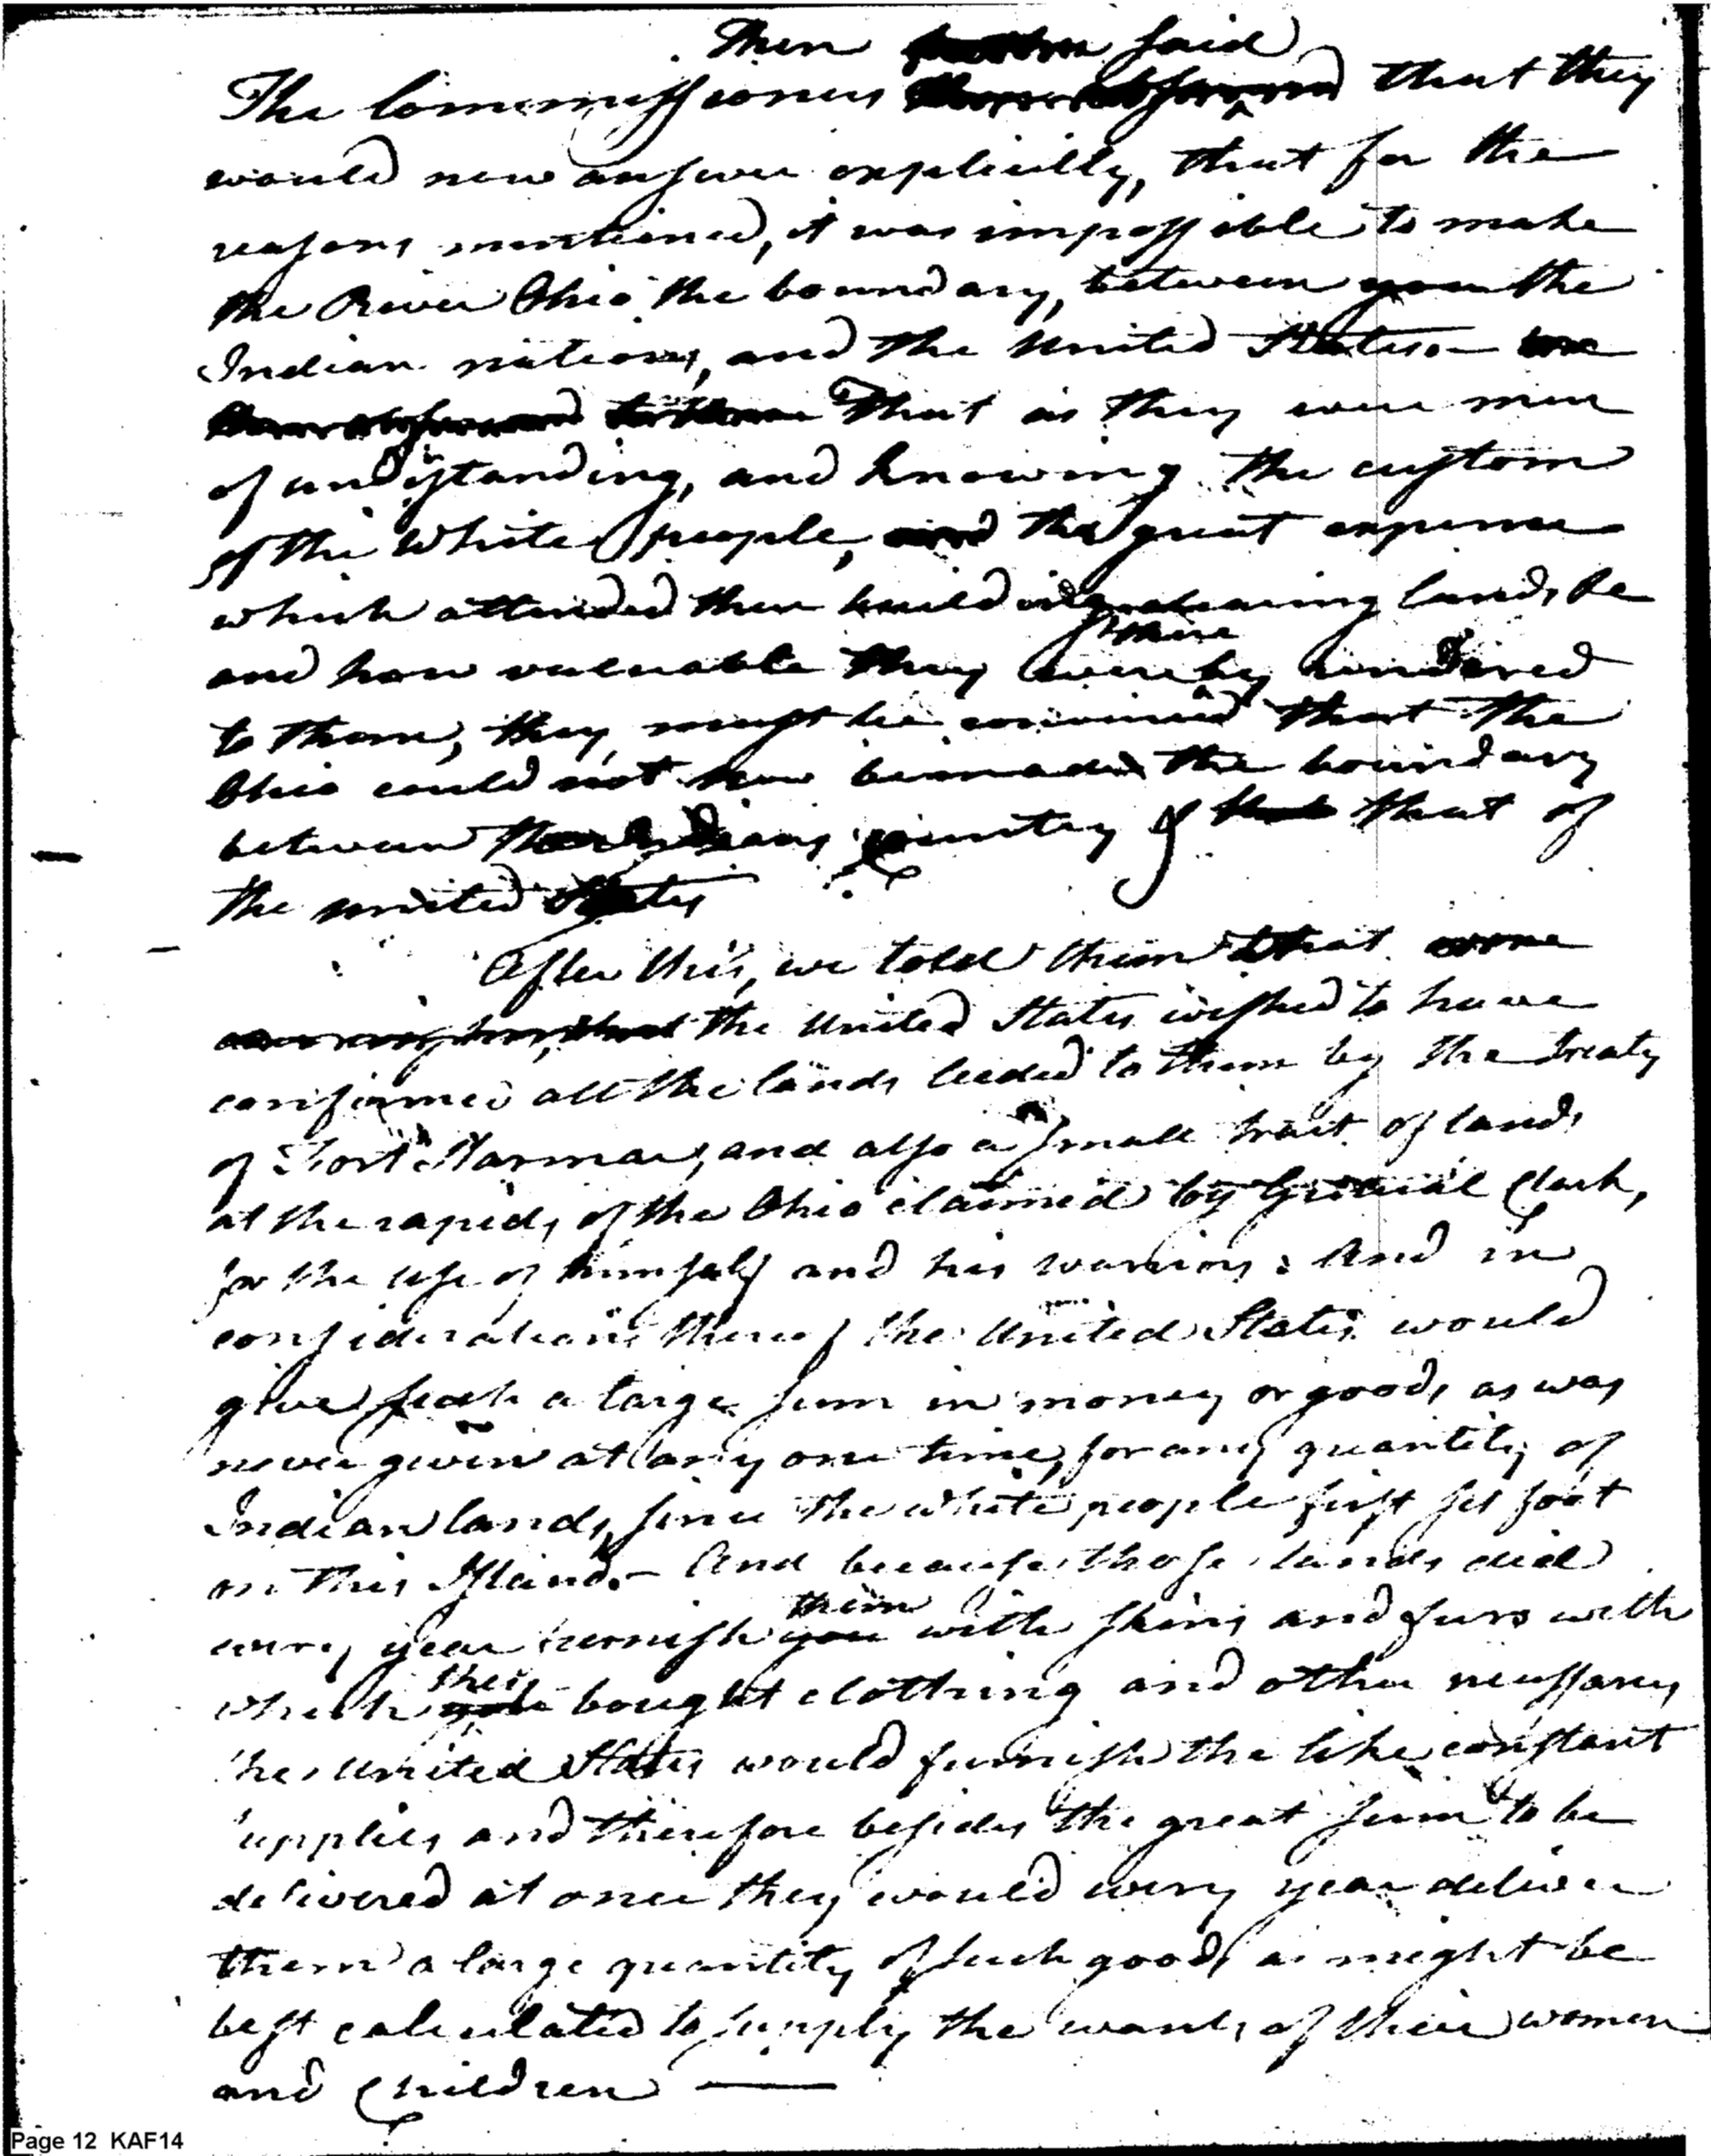 Then said
The Commissioners that they
would now answer explicitly, that for the
reasons mentioned, it was impossible to make
the River Ohio the boundary, between you the
Indian nations, and the United States - we
That as they were men
of understanding, and knowing the custom
of the White people, and the great expense
which attended their building, clearing lands &c
there
and how valuable they were by rendered
to them, they must be convinced that the
Ohio could not now be made the boundary
between the Indians country & that of
the united States
After this, we told them that
that the United States wished to have
confirmed all the lands ceeded to them by the treaty
of Fort Harmar, and also a small tract of lands
at the rapids of the Ohio claimed by General Clark,
for the use of himself and his warriors: And in
consideration thereof the United States would
give such a large sum in money or goods as was
never given at any one time, for any quantity of
Indian lands, since the white people first set foot
on this Island. - And because those lands did
them
every year furnish you with skins and furs with
they
which you bought clothing and other necessarys
the United States would furnish the like constant
supplies and therefore besides the great sum to be
delivered at once they would every year deliver
them a large quantity of such goods as might be
best calculated to supply the wants of their women
and Children —
Page 12 KAF14